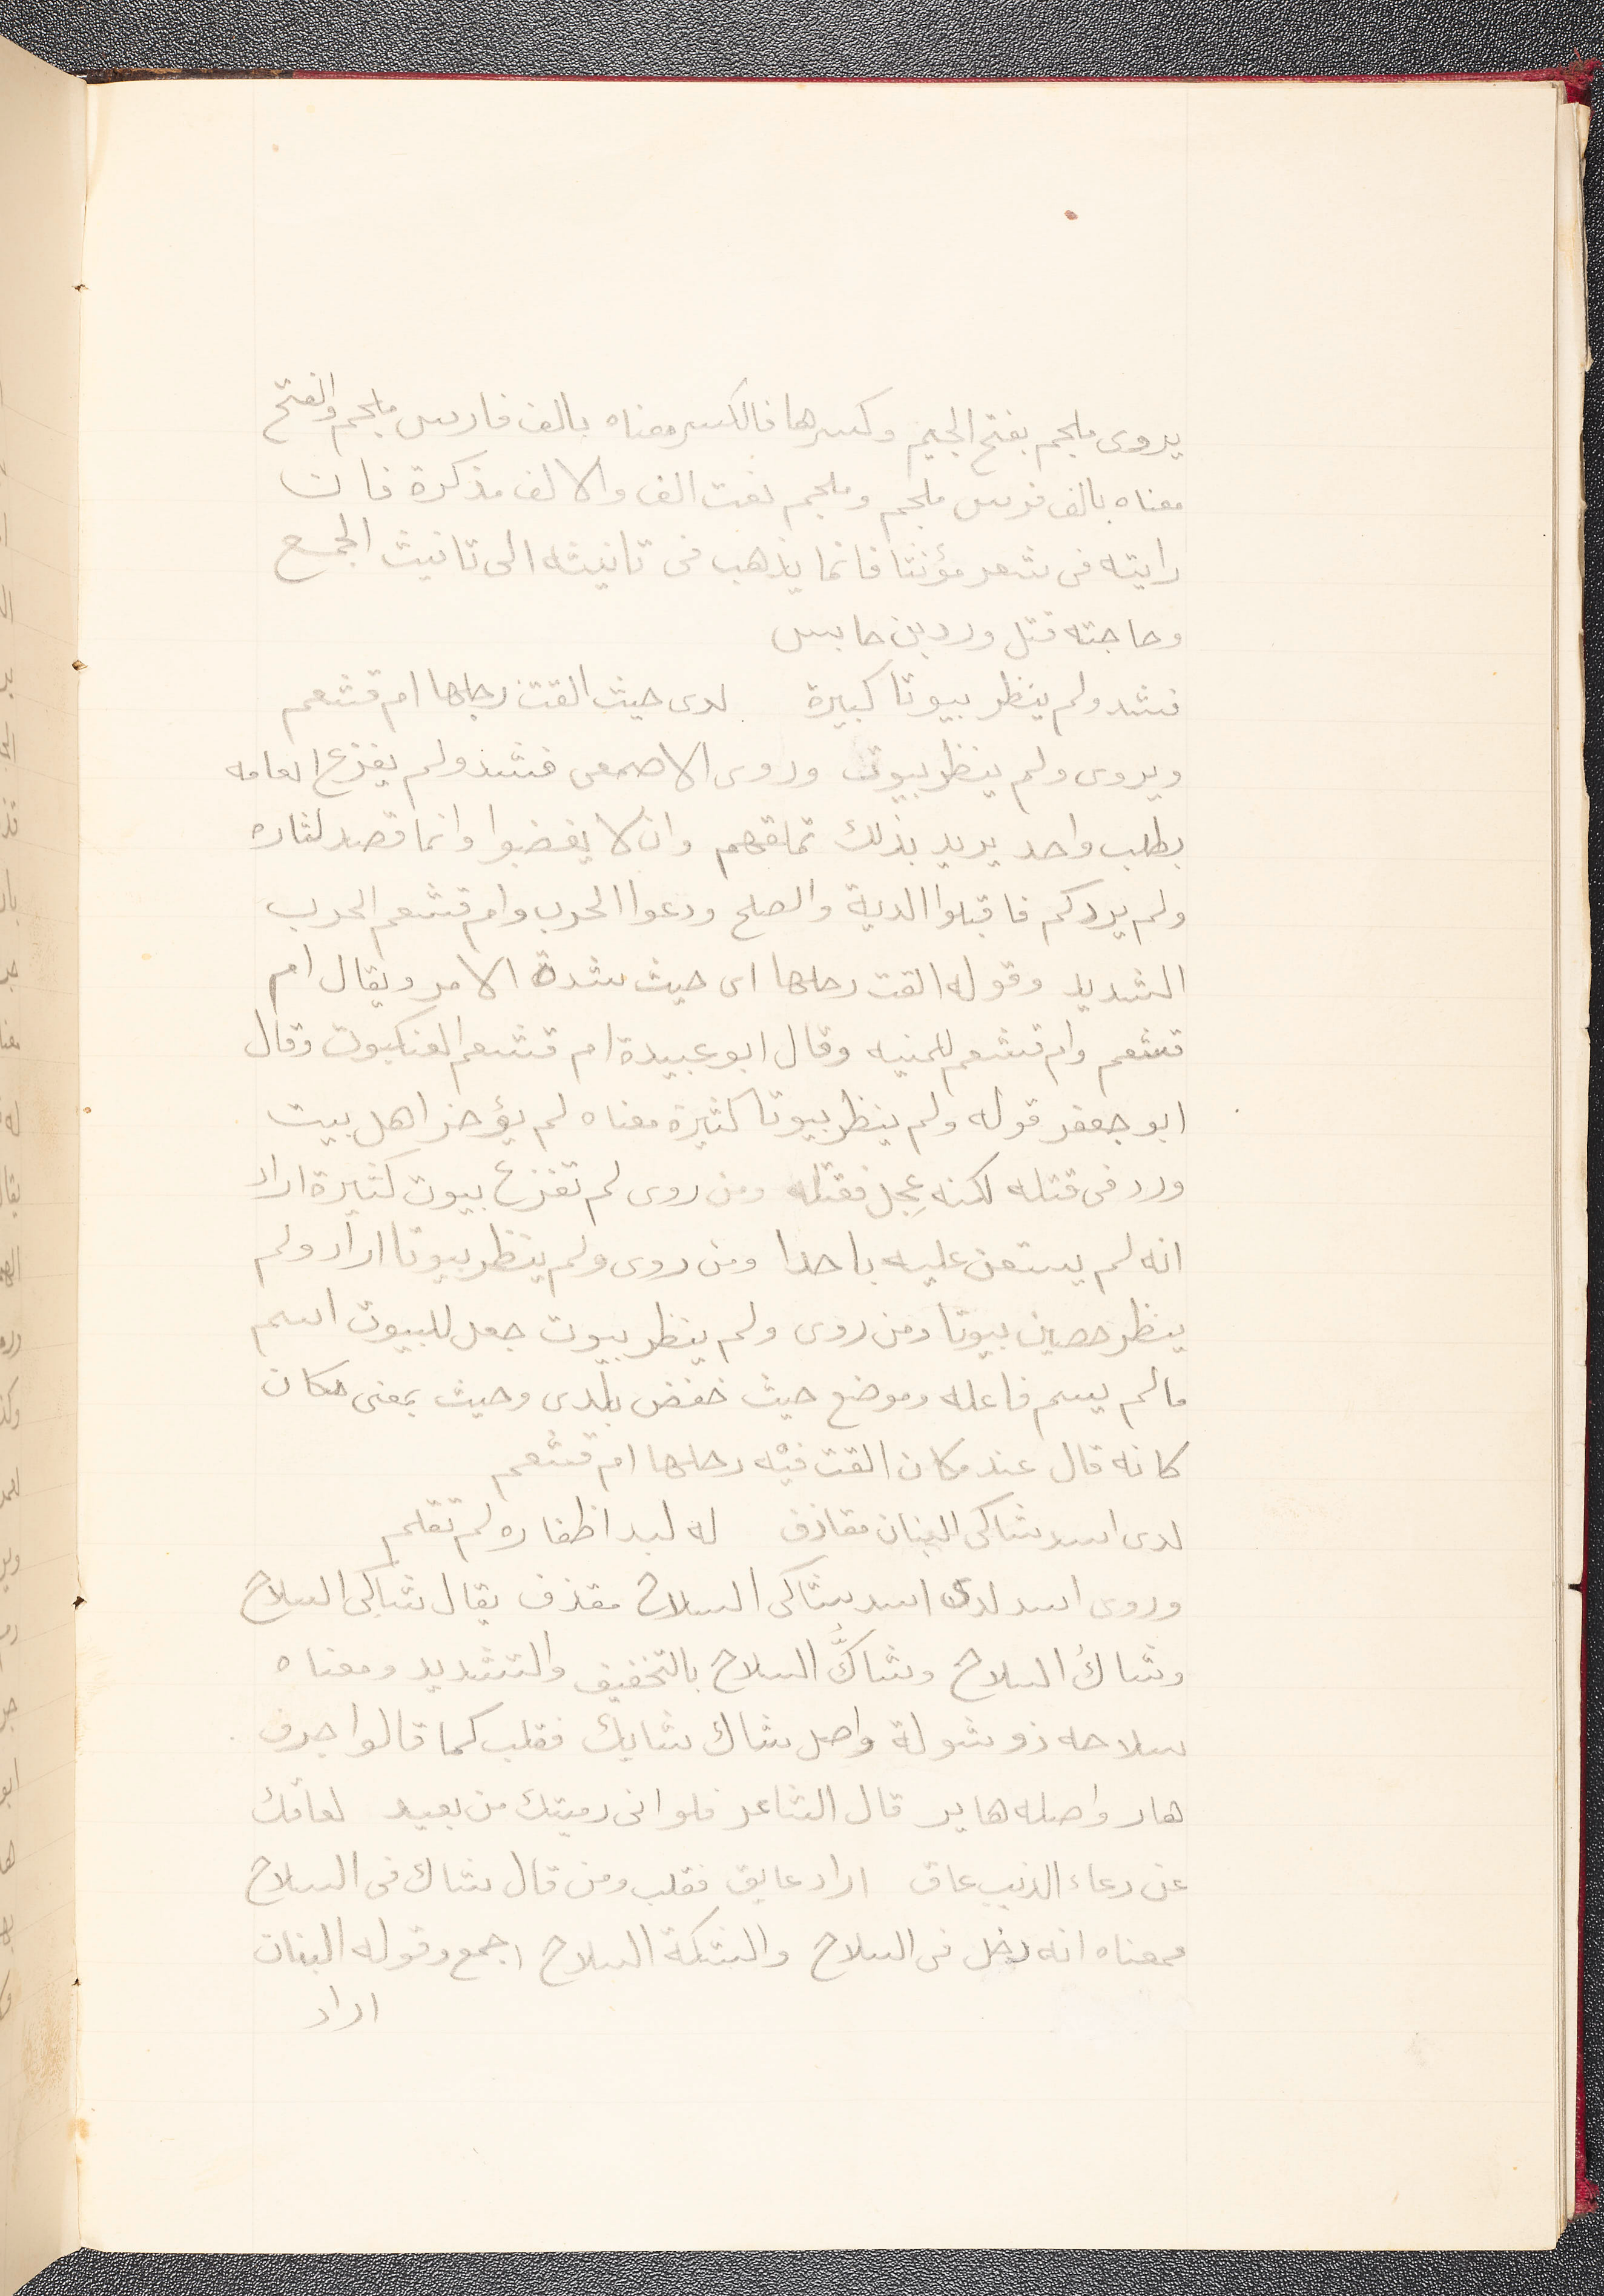 يروى ملجم بفتح الجيم وكسرها فالكسر معناه بالف فارس ملجم والفتح
معناه بالف فرس ملجم وملجم نعت الف والالف مذكرة فان
رايته فى شعر مؤنثا فانما يذهب فى تانيثه الى تانيث الجمع
وحاجته قتل ورد بن حابس
فشد ولم ينظر بيوتا كبيرة لدى حيث القت رحلها ام قشعم
ويروى ولم ينظر بيوت وروى الاصمعى فشد ولم يفزع العامه
بطلب واحد يريد بذلك تملقهم وان لا يغضبوا وانما قصد لثاره
ولم يردكم فاقبلوا الدية والصلح ودعوا الحرب وام قشعم الحرب
الشديد وقوله القت رحلها اى حيث شدة الامر ويقال ام
قشعم وام قشعم للمنيه وقال ابو عبيدة ام قشعم العنكبوت وقال
ابو جعفر قوله ولم ينظر بيوتا كثيرة معناه لم يؤخر اهل بيت
ورد فى قتله لكنه عجِل فقتله ومن روى لم تفزع بيوت كثيرة اراد
انه لم يستعن عليه باحدا ومن روى ولم ينظر بيوتا اراد ولم
ينظر حصين بيوتا ومن روى ولم ينظر بيوت جعل للبيوت اسم
مالم يسم فاعله وموضع حيث خفض بلدى وحيث بمعنى مكان
كانه قال عند مكان القت فيه رحلها ام قشعم
لدى اسد شاكى البنان مقاذف له لبد اظفاره لم تقلم
وروى اسد لدى اسد شاكى السلاح مقذف يقال شاكى السلاح
وشاكُ السلاح وشاكُّ السلاح بالتخفيف والتشديد ومعناه
سلاحه ذو شولة واصل شاك شايك فقلب كما قالوا جرف
هار واصله هاير قال الشاعر فلو انى رميتك من بعيد لعاقك
عن دعاء الذيب عاق اراد عايق فقلب ومن قال شاك فى السلاح
فمعناه انه دخل فى السلاح والشكة السلاح اجمع وقوله البنان
اراد